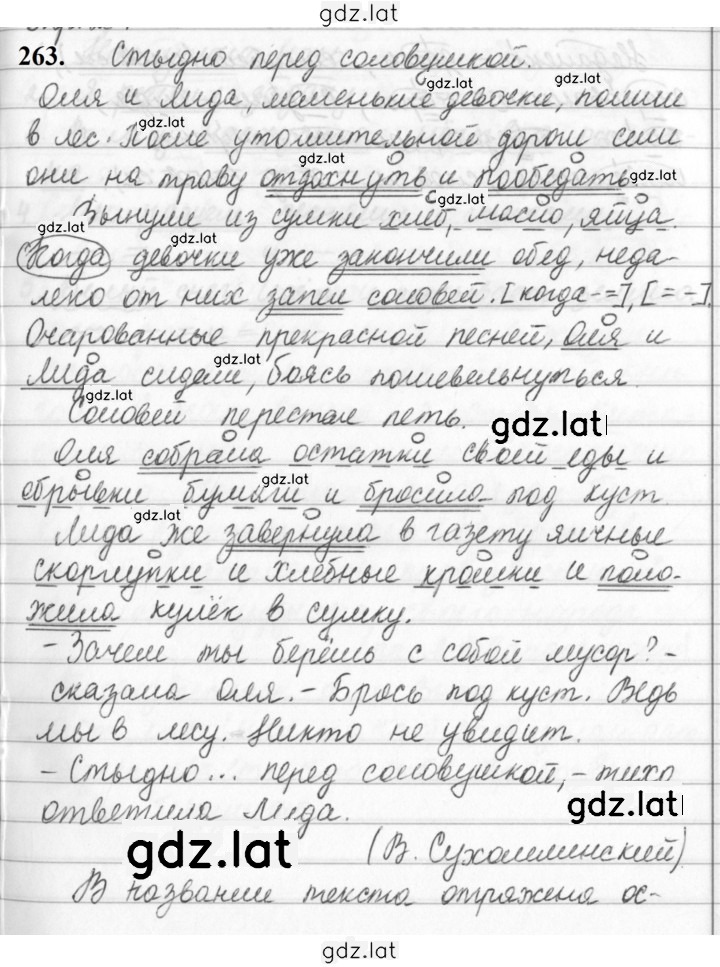 gdz.lat
263. Стыдно перед соловушкой.
gdz.lat gdz.lat
Оля и Лида, маленькие девочки, пошли
gdz.lat
в лес. После утомительной дороги сели
gdz.lat
они на траву отдохнуть и пообедать.
gdz.lat
Вынули из сумки хлеб, масло, яйца.
gdz.lat
Когда девочки уже закончили обед, неда-
леко от них запел соловей. [когда -=], [= -].
gdz.lat
Очарованные прекрасной песней, Оля и
gdz.lat
Лида сидели, боясь пошевельнуться.
Соловей перестал петь. gdz.lat
Оля собрала остатки своей еды и
gdz.lat
обрывки бумаги и бросила под куст.
gdz.lat
Лида же завернула в газету яичные
скорлупки и хлебные крошки и поло-
жила кулёк в сумку.
– Зачем ты берёшь с собой мусор? –
сказала Оля. – Брось под куст. Ведь
мы в лесу. Никто не увидит.
– Стыдно... перед соловушкой, – тихо
gdz.lat
ответила Лида.
gdz.lat
(В. Сухомлинский)
В названии текста отражена ос-
gdz.lat